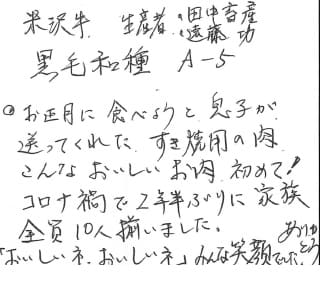 米沢牛 生産者:田中畜産
:遠藤 功
黒毛和種 A-5
◎お正月に食べようと息子が
送ってくれた すき焼用の肉
こんなおいしいお肉 初めて!
コロナ禍で2年半ぶりに家族
全員10人揃いました。
「おいしいネ、おいしいネ」みんな笑顔でした。
ありがとう